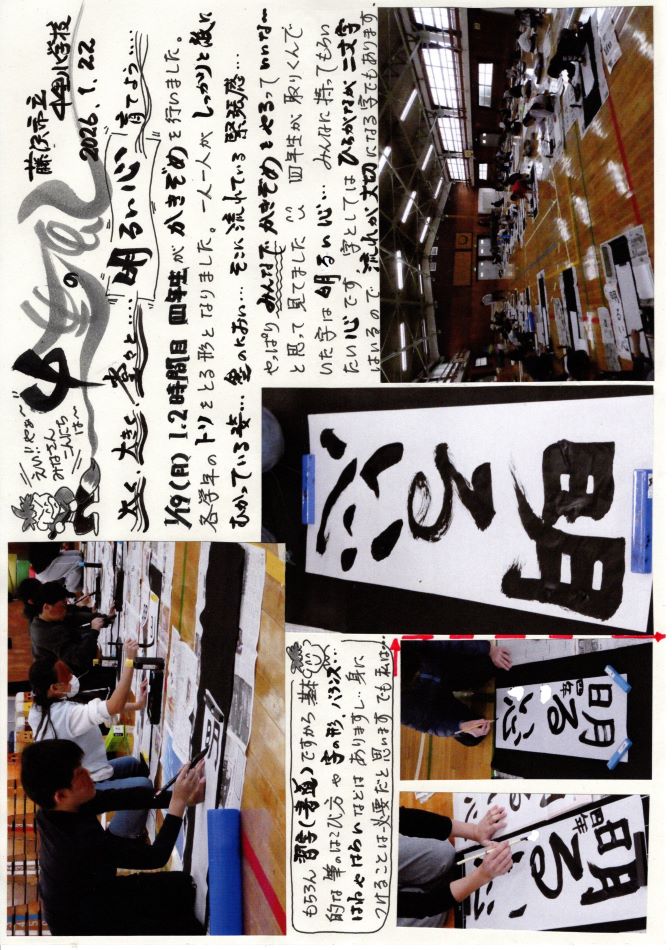 藤沢市立
2026.1.22
えい!!やぁ〜
みなさん
こんにちは〜
太く、大きく、堂々と……明るい心 育てよう……
1/19(月) 1.2時間目 四年生が かきぞめを行いました。
各学年のトリをとる形となりました。一人一人が しっかりと紙に
むかっている姿… 墨のにおい… そこに流れている緊張感…
やっぱり みんなで かきぞめを やるって いいな〜
と思って見てました 四年生が取りくんで
いた字は 明るい心… みんなに持ってもらい
たい心です 字としては ひらがなが二文字
はいるので 流れが大切になる字でもあります
明るい心
もちろん 習字(書道)ですから 基本
的な筆のはこび方や 字の形、バランス…
はねやはらい などは ありますし、身に
つけることは必要だと思います でも私は…
明
明るい心
四年
明るい心
四年